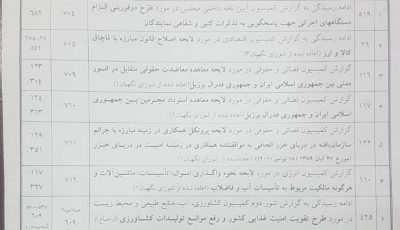 ادامه رسیدگی به گزارش کمیسیون آیین نامه داخلی مجلس در مورد طرح دوفوریتی الزام
۱ ۵۱۹ دستگاههای اجرائی جهت پاسخگویی به تذکرات کتبی و شفاهی نمایندگان ۷۰۴ ۶۸۲
ادامه رسیدگی به گزارش کمیسیون اقتصادی در مورد لایحه اصلاح قانون مبارزه با قاچاق
۲ ۲۶ کالا و ارز (اعاده شده از شورای نگهبان) ۷۰۵
گزارش کمیسیون قضائی و حقوقی در مورد لایحه معاهده معاضدت حقوقی متقابل در امور
۳ ۱۱۶ مدنی بین جمهوری اسلامی ایران و جمهوری فدرال برزیل (اعاده شده از شورای نگهبان) ۷۰۹ ۱۲۳ ۳۰۴
گزارش کمیسیون قضائی و حقوقی در مورد لایحه معاهده استرداد مجرمین بین جمهوری
۴ ۱۱۷ اسلامی ایران و جمهوری فدرال برزیل (اعاده شده از شورای نگهبان) ۷۱۰ ۱۲۴ ۳۱۳
گزارش کمیسیون قضائی و حقوقی در مورد لایحه پروتکل همکاری در زمینه مبارزه با جرائم
۵ ۱۲۲ سازمان‌یافته در دریای خزر الحاقی به موافقتنامه همکاری در زمینه امنیت در دریای خزر ۷۱۱ ۱۲۹ ۳۵۱
(مورخ ۲۷ آبان ۱۳۸۹ (۱۸ نوامبر ۲۰۱۰)) (اعاده شده از شورای نگهبان)
گزارش کمیسیون انرژی در مورد لایحه نحوه واگذاری اموال، تأسیسات، ماشین‌آلات و
۶ ۱۱۰ هرگونه مالکیت مربوط به تأسیسات آب و فاضلاب (اعاده شده از شورای نگهبان) ۷۱۲ ۱۱۷ ۳۲۷
ادامه رسیدگی به گزارش شور دوم کمیسیون کشاورزی، آب، منابع طبیعی و محیط زیست
۷ ۴۲۵ در مورد طرح تقویت امنیت غذایی کشور و رفع موانع تولیدات کشاورزی ۶۰۹